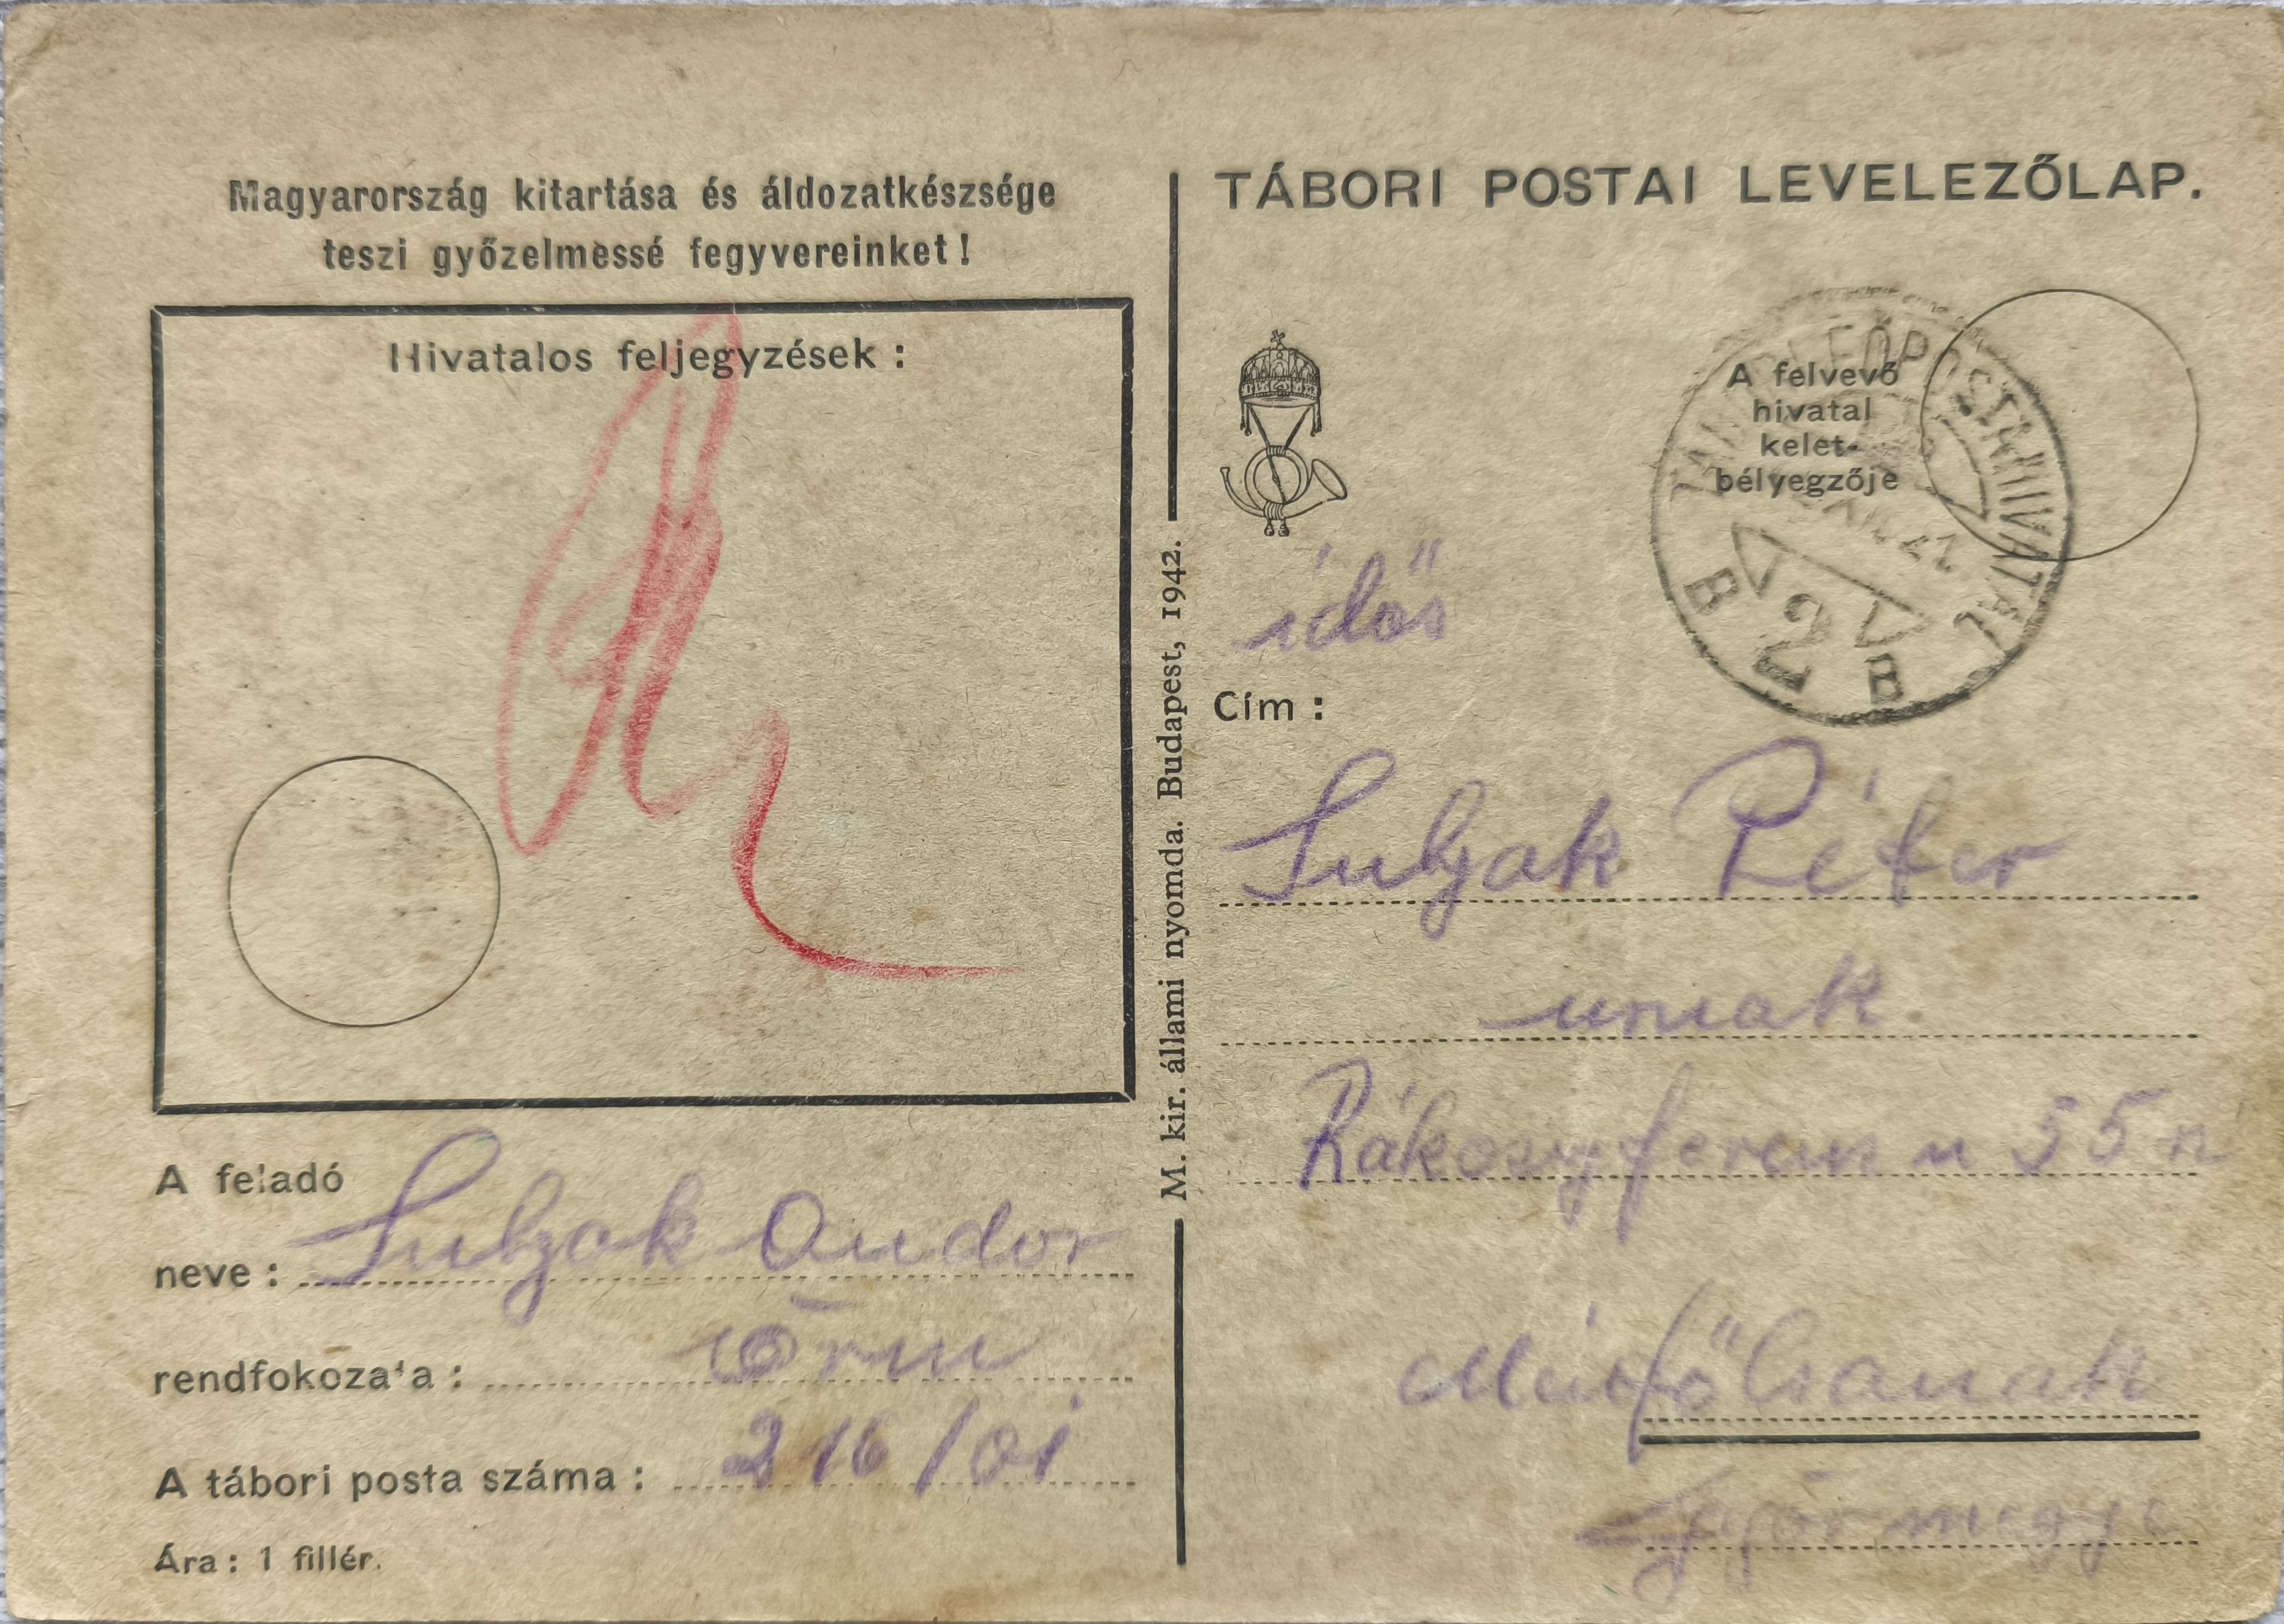 Magyarország kitartása és áldozatkészsége
teszi győzelmessé fegyvereinket!
Hivatalos feljegyzések :
A feladó
neve : Sulyak Andor
rendfokozata :
A tábori posta száma : 216/01
Ára : 1 fillér.
M. kir. állami nyomda. Budapest, 1942.
TÁBORI POSTAI LEVELEZŐLAP.
A felvevő
hivatal
kelet-
bélyegzője
TÁBORI FŐPOSTAHIVATAL
B 2 B
idős
Cím :
Sulyak Péter
urnak
u 55
Győr megye